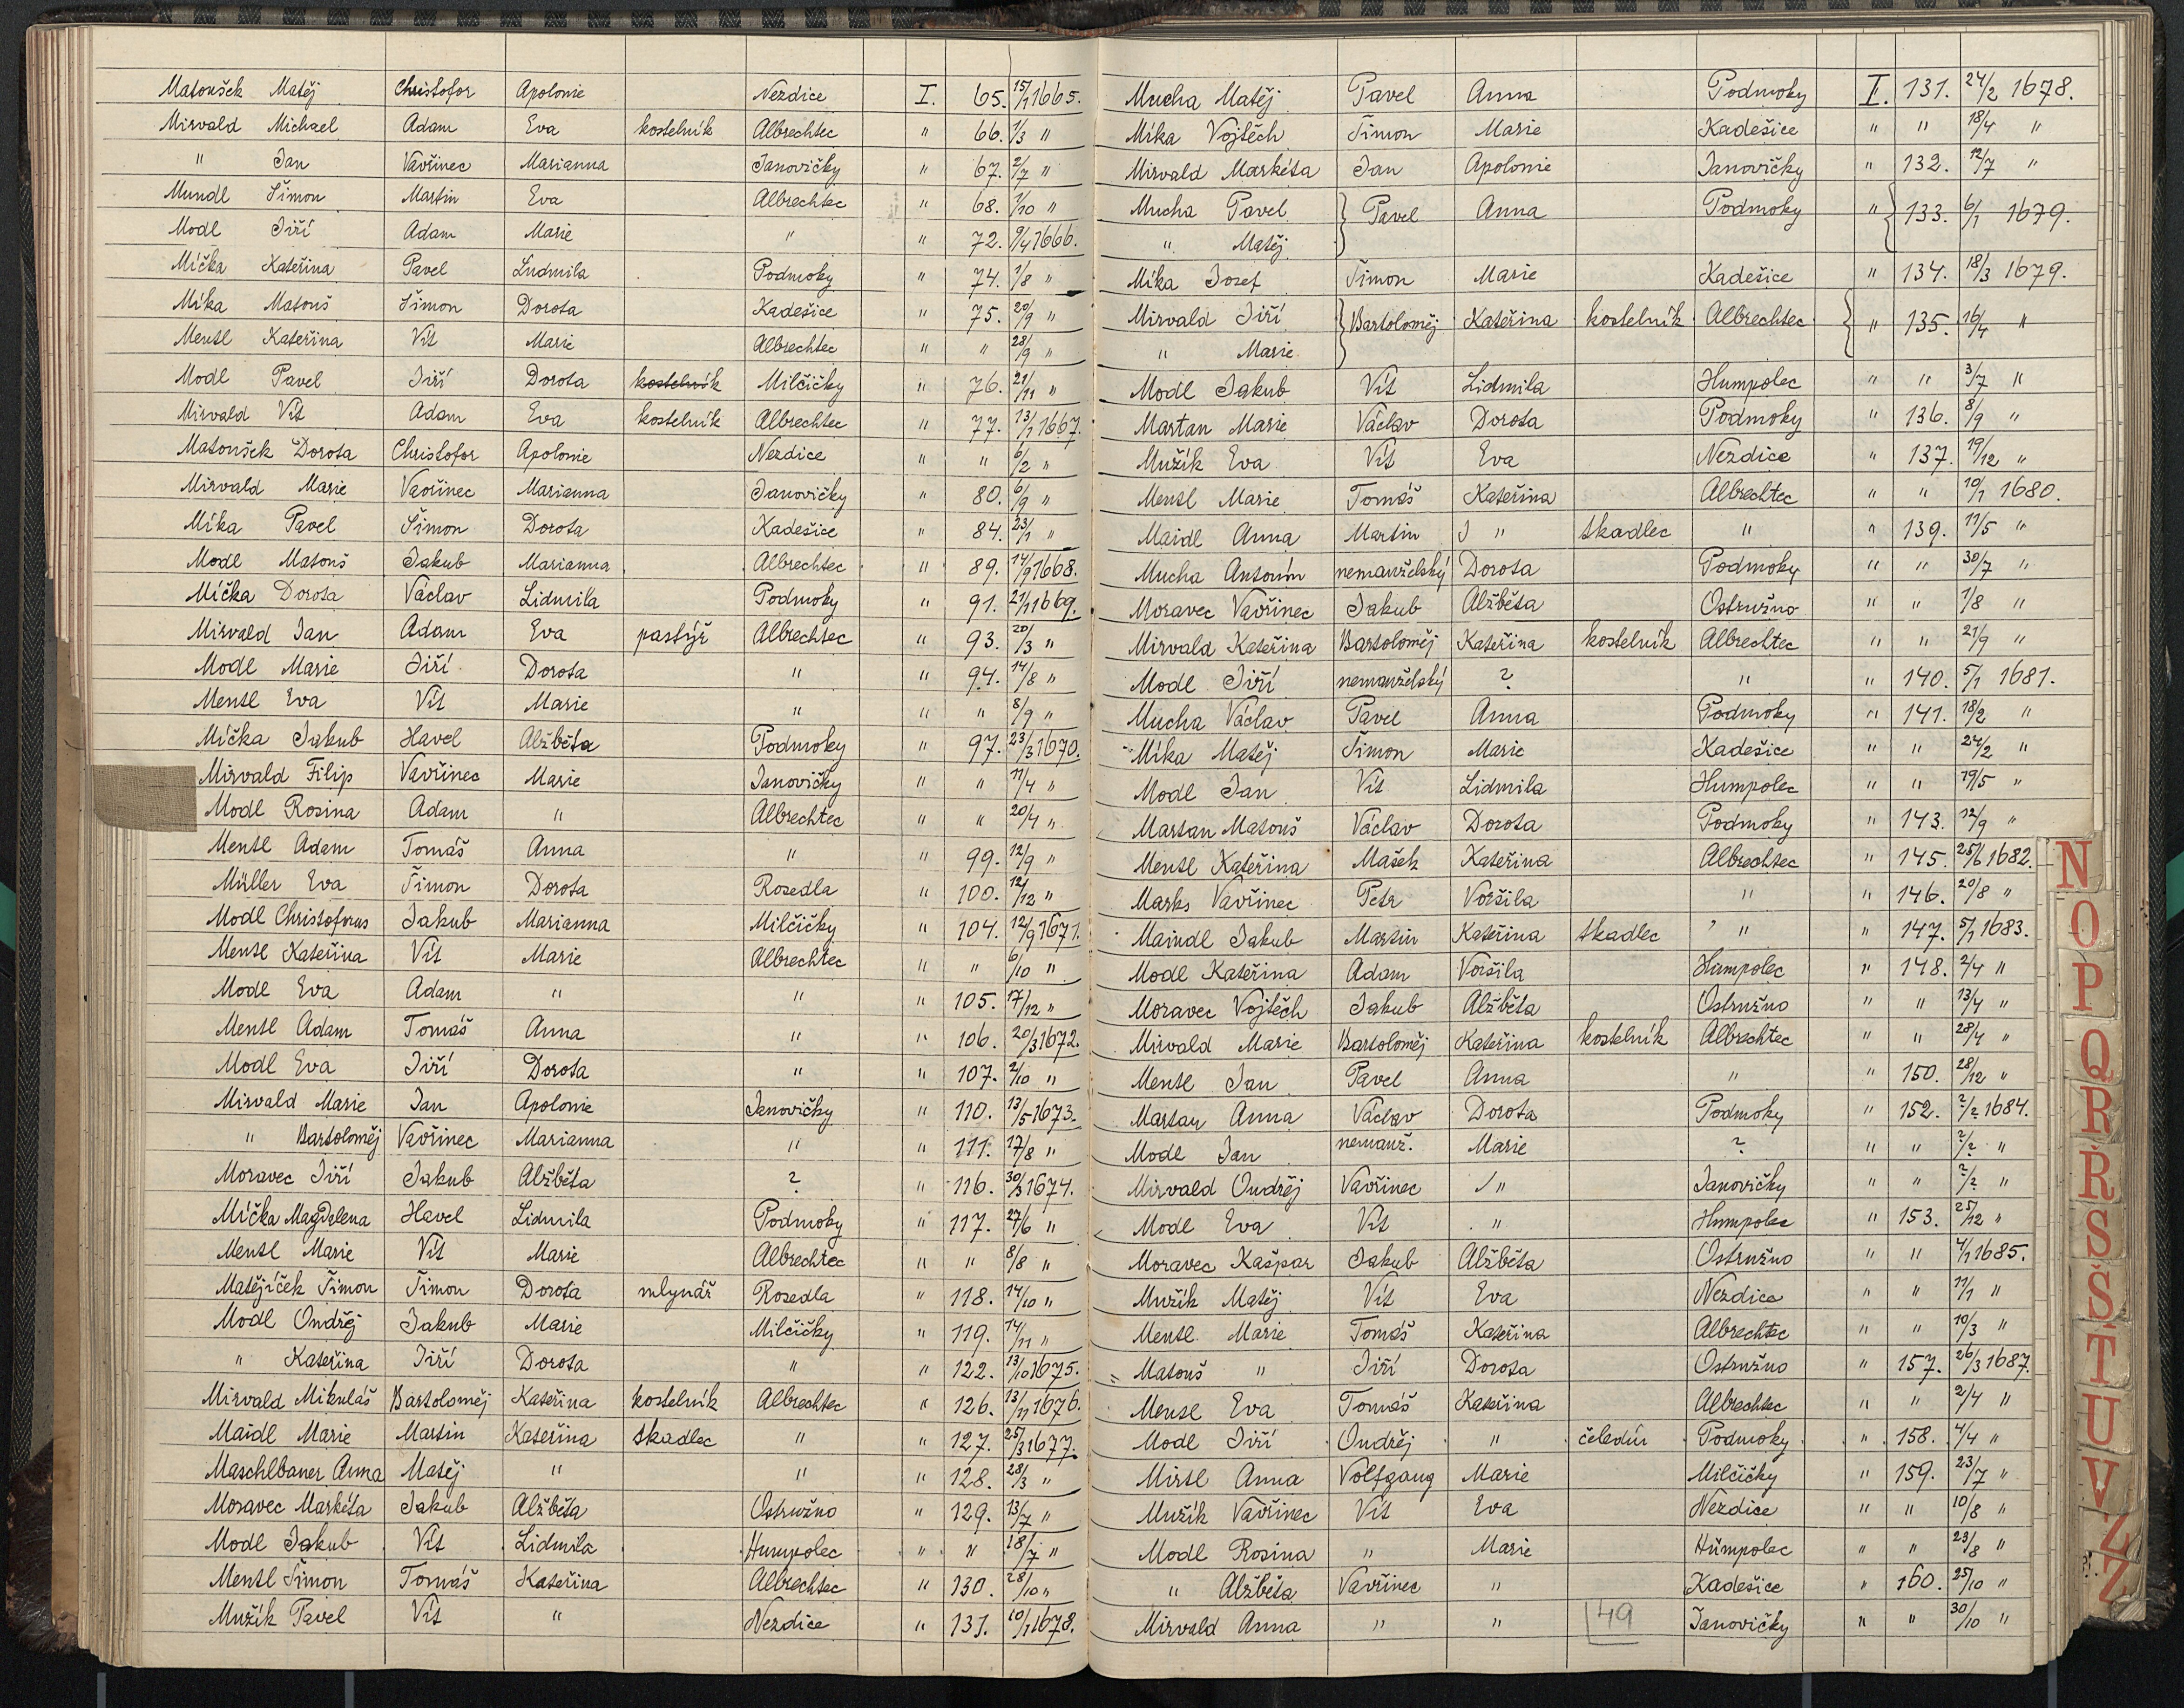 Matoušek Matěj Christofor Apolonie Nezdice I. 65. 15/1 1665.
Mirvald Michael Adam Eva kostelník Albrechtec " 66. 1/3 "
" Jan Vavřinec Marianna Janovičky " 67. 2/7 "
Mundl Šimon Martin Eva Albrechtec " 68. 1/10 "
Modl Jiří Adam Marie " " 72. 9/4 1666.
Míčka Kateřina Pavel Ludmila Podmoky " 74. 1/8 "
Míka Matouš Šimon Dorota Kadešice " 75. 20/9 "
Mentl Kateřina Vít Marie Albrechtec " " 28/9 "
Modl Pavel Jiří Dorota kostelník Milčičky " 76. 21/11 "
Mirvald Vít Adam Eva kostelník Albrechtec " 77. 13/1 1667.
Matoušek Dorota Christofor Apolonie Nezdice " " 6/2 "
Mirvald Marie Vavřinec Marianna Janovičky " 80. 6/9 "
Míka Pavel Šimon Dorota Kadešice " 84. 23/1 "
Modl Matouš Jakub Marianna Albrechtec " 89. 14/9 1668.
Míčka Dorota Václav Lidmila Podmoky " 91. 21/1 1669.
Mirvald Jan Adam Eva pastýř Albrechtec " 93. 20/3 "
Modl Marie Jiří Dorota " " 94. 14/8 "
Mentl Eva Vít Marie " " " 8/9 "
Míčka Jakub Havel Alžběta Podmoky " 97. 23/3 1670.
Mirvald Filip Vavřinec Marie Janovičky " " 11/4 "
Modl Rosina Adam " Albrechtec " " 20/4 "
Mentl Adam Tomáš Anna " " 99. 12/9 "
Müller Eva Šimon Dorota Rosedla " 100. 12/12 "
Modl Christoforus Jakub Marianna Milčičky " 104. 12/9 1671.
Mentl Kateřina Vít Marie Albrechtec " " 6/10 "
Modl Eva Adam " " " 105. 17/12 "
Mentl Adam Tomáš Anna " " 106. 20/3 1672.
Modl Eva Jiří Dorota " " 107. 2/10 "
Mirvald Marie Jan Apolonie Janovičky " 110. 13/5 1673.
" Bartoloměj Vavřinec Marianna " " 111. 17/8 "
Moravec Jiří Jakub Alžběta ? " 116. 30/3 1674.
Míčka Magdalena Havel Lidmila Podmoky " 117. 27/6 "
Mentl Marie Vít Marie Albrechtec " " 8/8 "
Matějíček Šimon Šimon Dorota mlynář Rosedla " 118. 14/10 "
Modl Ondřej Jakub Marie Milčičky " 119. 14/11 "
" Kateřina Jiří Dorota " " 122. 13/10 1675.
Mirvald Mikuláš Bartoloměj Kateřina kostelník Albrechtec " 126. 13/11 1676.
Maidl Marie Martin Kateřina tkadlec " " 127. 25/3 1677.
Maschlbauer Anna Matěj " " " 128. 28/3 "
Moravec Markéta Jakub Alžběta Ostružno " 129. 13/7 "
Modl Jakub Vít Lidmila Humpolec " " 18/7 "
Mentl Šimon Tomáš Kateřina Albrechtec " 130. 28/10 "
Mužík Pavel Vít " Nezdice " 131. 10/1 1678.
Mucha Matěj Pavel Anna Podmoky I. 131. 24/2 1678.
Míka Vojtěch Šimon Marie Kadešice " " 18/4 "
Mirvald Markéta Jan Apolonie Janovičky " 132. 12/7 "
Mucha Pavel } Pavel Anna Podmoky " } 133. 6/1 1679.
" Matěj
Míka Josef Šimon Marie Kadešice " 134. 18/3 1679.
Mirvald Jiří } Bartoloměj Kateřina kostelník Albrechtec } " 135. 16/4 "
" Marie
Modl Jakub Vít Lidmila Humpolec " " 3/7 "
Martan Marie Václav Dorota Podmoky " 136. 8/9 "
Mužík Eva Vít Eva Nezdice " 137. 19/12 "
Mentl Marie Tomáš Kateřina Albrechtec " " 19/1 1680.
Maidl Anna Martin " tkadlec " " 139. 11/5 "
Mucha Antonín nemanželský Dorota Podmoky " " 30/7 "
Moravec Vavřinec Jakub Alžběta Ostružno " " 1/8 "
Mirvald Kateřina Bartoloměj Kateřina kostelník Albrechtec " " 21/9 "
Modl Jiří nemanželský ? " " 140. 5/1 1681.
Mucha Václav Pavel Anna Podmoky " 141. 18/2 "
Míka Matěj Šimon Marie Kadešice " " 24/2 "
Modl Jan Vít Lidmila Humpolec " " 19/5 "
Martan Matouš Václav Dorota Podmoky " 143. 12/9 "
Mentl Kateřina Mašek Kateřina Albrechtec " 145. 25/6 1682.
Marks Vavřinec Petr Voršila " " 146. 20/8 "
Maindl Jakub Martin Kateřina tkadlec " " 147. 5/1 1683.
Modl Kateřina Adam Voršila Humpolec " 148. 2/4 "
Moravec Vojtěch Jakub Alžběta Ostružno " " 13/4 "
Mirvald Marie Bartoloměj Kateřina kostelník Albrechtec " " 28/4 "
Mentl Jan Pavel Anna " " 150. 28/12 "
Martan Anna Václav Dorota Podmoky " 152. ?/2 1684.
Modl Jan nemanž. Marie ? " " ?/? "
Mirvald Ondřej Vavřinec " Janovičky " " ?/2 "
Modl Eva Vít " Humpolec " 153. 25/12 "
Moravec Kašpar Jakub Alžběta Ostružno " " 4/1 1685.
Mužík Matěj Vít Eva Nezdice " " 11/1 "
Mentl Marie Tomáš Kateřina Albrechtec " " 10/3 "
Matouš " Jiří Dorota Ostružno " 157. 26/3 1687.
Mentl Eva Tomáš Kateřina Albrechtec " " 2/4 "
Modl Jiří Ondřej " čeledín Podmoky " 158. 4/4 "
Mirtl Anna Volfgang Marie Milčičky " 159. 23/7 "
Mužík Vavřinec Vít Eva Nezdice " " 10/8 "
Modl Rosina " Marie Humpolec " " 23/8 "
" Alžběta Vavřinec " Kadešice " 160. 25/10 "
Mirvald Anna " " 49 Janovičky " " 30/10 "
N
O
P
Q
R
Ř
S
Š
T
U
V
Z
Ž